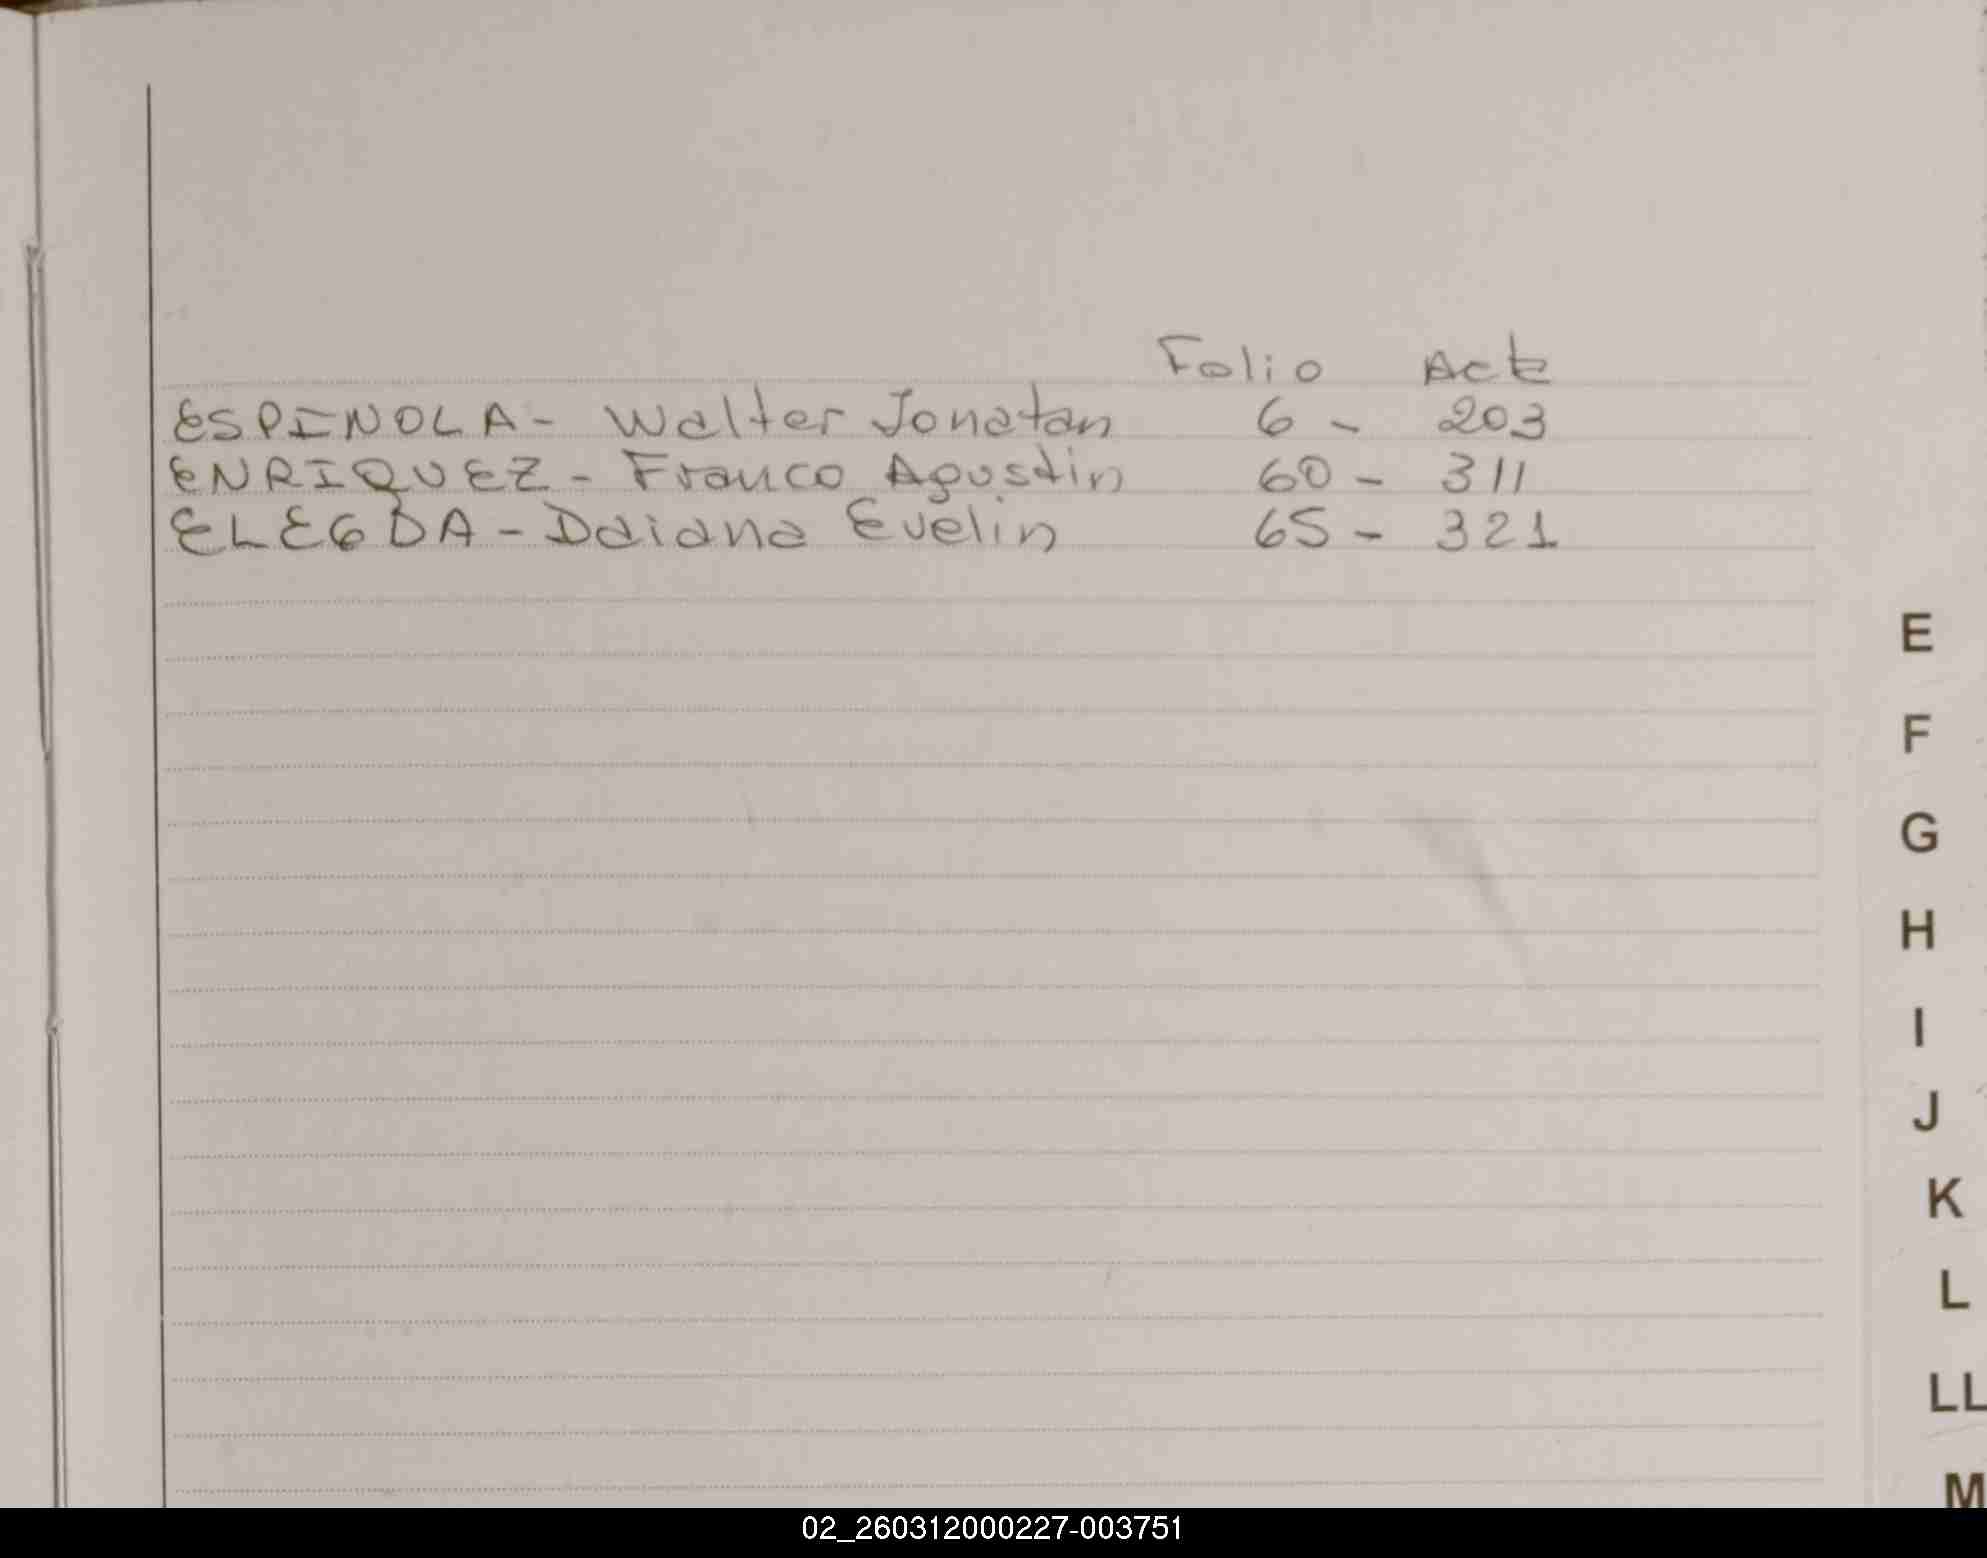 Folio Acta
ESPINOLA - Walter Jonatan 6 - 203
ENRIQUEZ - Franco Agustin 60 - 311
ELEGDA - Daiana Evelin 65 - 321
E
F
G
H
I
J
K
L
LL
M
02_260312000227-003751